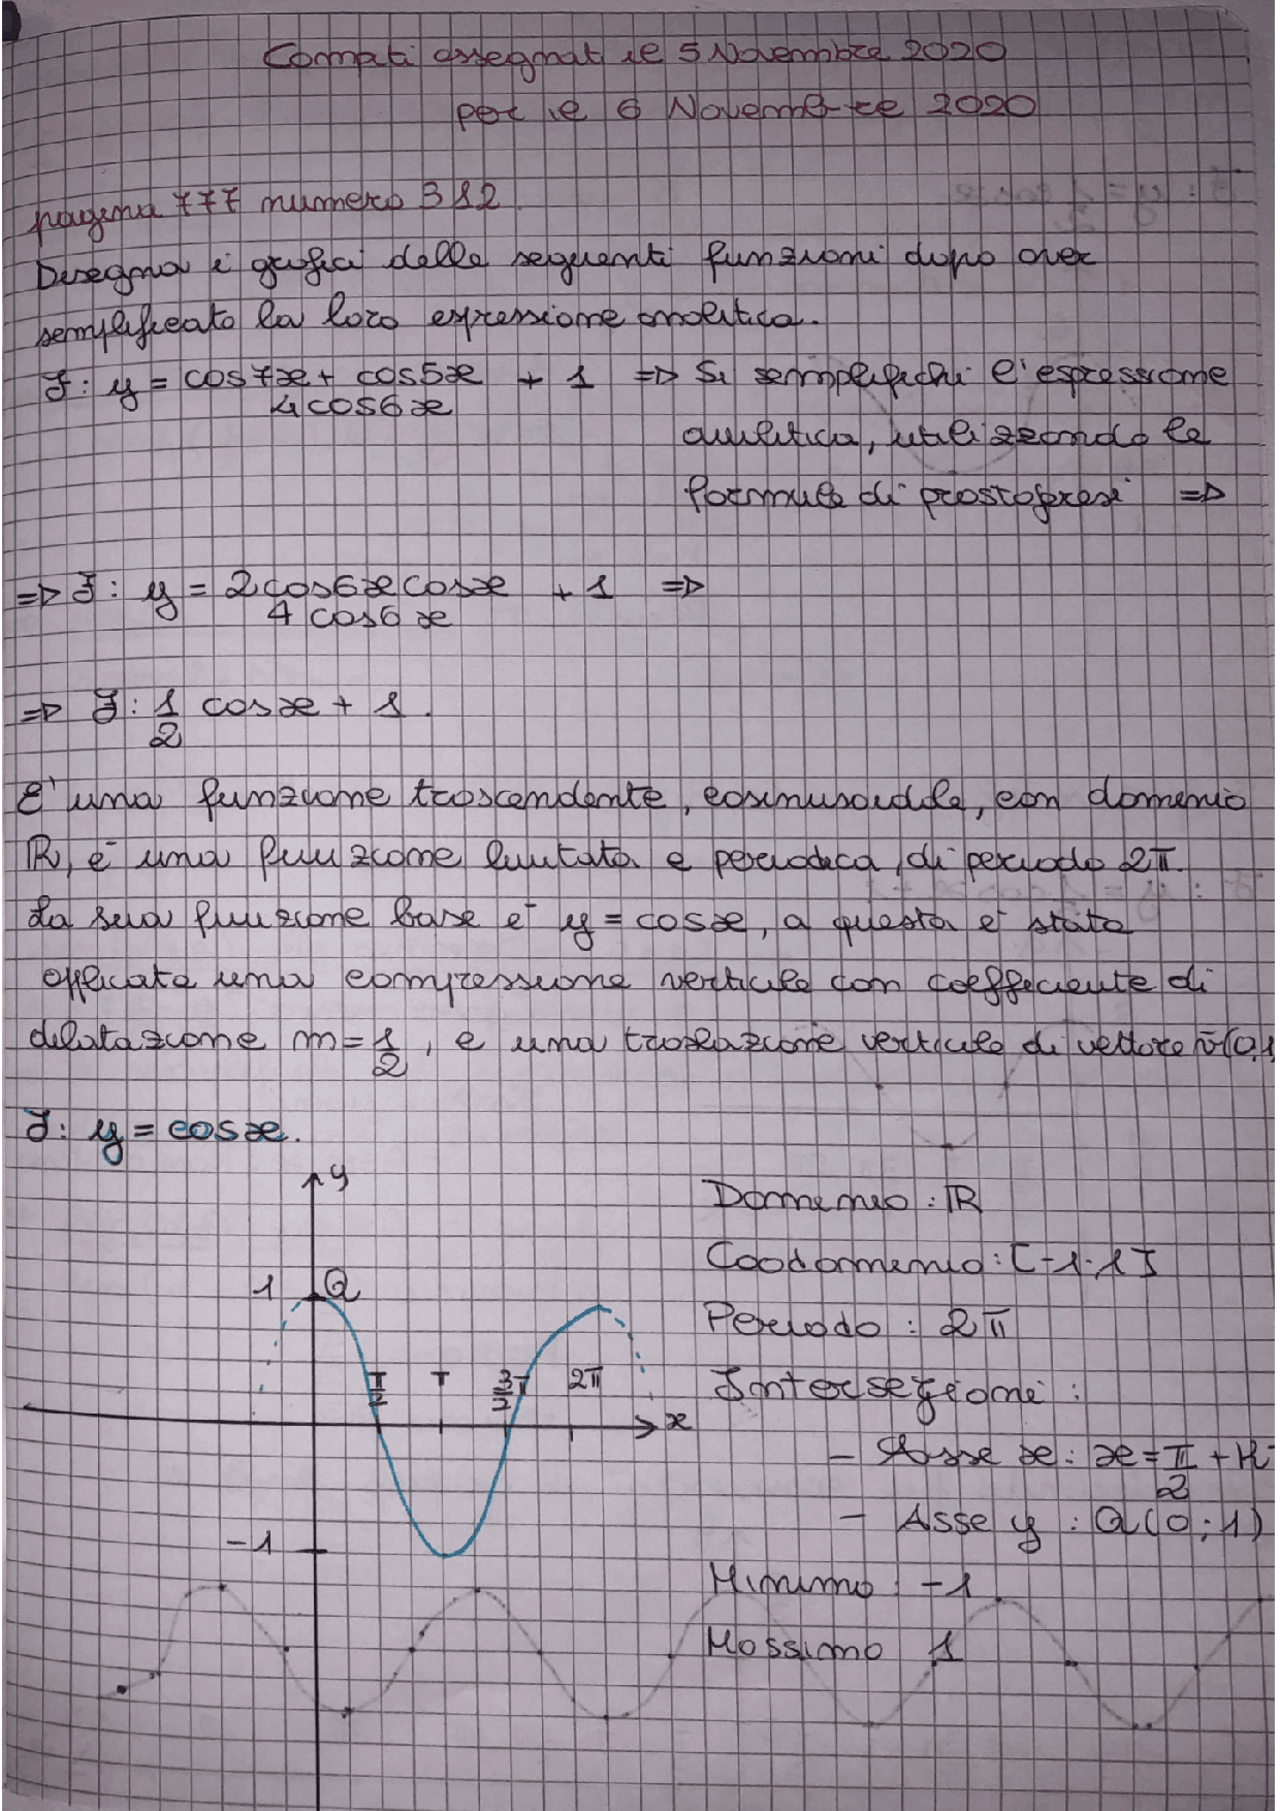 Compiti assegnati il 5 Novembre 2020
per il 6 Novembre 2020
pagina 777 numero 312
Disegna i grafici delle seguenti funzioni dopo aver
semplificato la loro espressione analitica.
f: y = cos7x + cos5x / 4cos6x + 1 => Si semplifichi l'espressione
analitica, utilizzando le
formule di prostaferesi =>
=> f: y = 2cos6xcosx / 4cos6x + 1 =>
=> f: 1/2 cosx + 1.
E' una funzione trascendente, cosinusoidale, con dominio
R, è una funzione limitata e periodica, di periodo 2π.
La sua funzione base è y = cosx, a questa è stata
applicata una compressione verticale con coefficiente di
dilatazione m = 1/2, e una traslazione verticale di vettore v(0,1
f: y = cosx.
y
Dominio: R
Coodominio: [-1;1]
1 Q
Periodo: 2π
π/2 π 3/2π 2π
Intersezioni:
x
- Asse x: x = π/2 + K
- Asse y: Q(0;1)
-1
Minimo: -1
Massimo 1